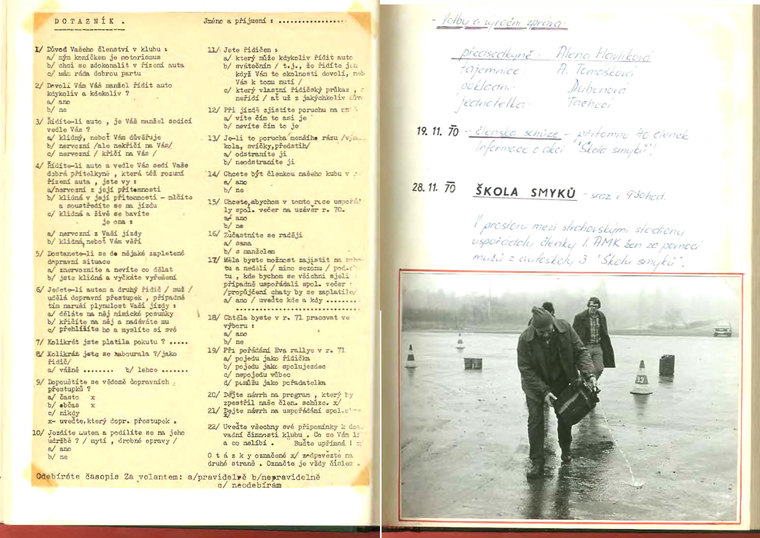 DOTAZNÍK .
Jméno a příjmení : ................
1/ Důvod Vašeho členství v klubu :
a/ mým koníčkem je motorismus
b/ chci se zdokonalit v řízení auta
c/ mám ráda dobrou partu
2/ Devolí Vám Váš manžel řídit auto
kdykoliv a kdekoliv ?
a/ ano
b/ ne
3/ Řídíte-li auto , je Váš manžel sedící
vedle Vás ?
a/ klidný, neboť Vám důvěřuje
b/ nervozní /ale nekřičí na Vás/
c/ nervozní / křičí na Vás /
4/ Řídíte-li auto a vedle Vás sedí Vaše
dobrá přítelkyně , která též rozumí
řízení auta , jste vy :
a/nervozní z její přítomnosti
b/ klidná v její přítomnosti - mlčíte
a soustředíte se na jízdu
c/ klidná a živě se bavíte
je ona :
a/ nervozní z Vaší jízdy
b/ klidná, neboť Vám věří
5/ Dostanete-li se do nějaké zapletené
dopravní situace
a/ znervozníte a nevíte co dělat
b/ jste klidná a vyčkáte vyřešení
6/ Jedete-li autem a druhý řidič / muž /
udělá dopravní přestupek , případně
tím naruší plynulost Vaší jízdy :
a/ děláte na něj mimické posunky
b/ křičíte na něj a nadáváte mu
c/ přehlížíte ho a myslíte si své
7/ Kolikrát jste platila pokutu ? .....
8/ Kolikrát jste se zabourala ?/jako
řidič/
a/ vážně ....... b/ lehce .....
9/ Dopouštíte se vědomě dopravních
přestupků ?
a/ často x
b/ občas x
c/ nikdy
x- uveďte,který dopr. přestupek .
10/ Jezdíte autem a podílíte se na jeho
údržbě ? / mytí , drobné opravy /
a/ ano
b/ ne
11/ Jste řidičem :
a/ který může kdykoliv řídit auto
b/ svátečním / t.j., že řídíte jen
když Vám to okolnosti dovolí, neb
Vás k tomu nutí /
c/ který vlastní řidičský průkaz ,
neřídí / ať už z jakýchkoliv
12/ Při jízdě zjistíte poruchu na
a/ víte čím to asi je
b/ nevíte čím to je
13/ Je-li to porucha menšího rázu
kola, svíčky,předstih/
a/ odstraníte ji
b/ neodstraníte ji
14/ Chcete být členkou našeho kubu v
a/ ano
b/ ne
15/ Chcete,abychom v tomto roce uspořá
ly spol. večer na uzávěr r. 70.
a/ ano
b/ ne
16/ Zúčastníte se raději
a/ sama
b/ s manželem
17/ Měla byste možnost zajistit na
tu a neděli / mimo sezónu /
tu , kde bychom se všichni sjeli
případně uspořádali spol. večer
/propůjčení chaty by se zaplatilo/
a/ ano / uveďte kde a kdy ........
..............................
18/ Chtěla byste v r. 71 pracovat ve
výboru :
a/ ano
b/ ne
19/ Při pořádání Eva rallye v r. 71
a/ pojedu jako řidička
b/ pojedu jako spolujezdec
c/ nepojedu vůbec
d/ pomůžu jako pořadatelka
20/ Dejte návrh na program , který by
zpestřil naše člen. schůze. x/
21/ Dejte návrh na uspořádání
22/ Uveďte všechny své připomínky k
vadní činnosti klubu . Co se Vám lí
a co nelíbí . Buďte upřímná ! x
O t á z k y označené x/ zodpovězte na
druhé straně . Označte je vždy číslem .
Odebíráte časopis Za volantem: a/pravidelně b/nepravidelně
c/ neodebírám
- Volby a výroční zpráva:
předsedkyně: Alena Havlíková
tajemnice A. Tomášková
pokladní Dubenová
jednatelka: Tachecí
19. 11. 70 - členská schůze - přítomno 40 členek
Informace o akci "Škola smyků".
28. 11. 70 ŠKOLA SMYKŮ - sraz v 9 hod.
V prostoru mezi strahovskými stadiony
uspořádaly členky 1. AMK žen za pomoci
mužů z autoškoly 3 "Školu smyků".
13